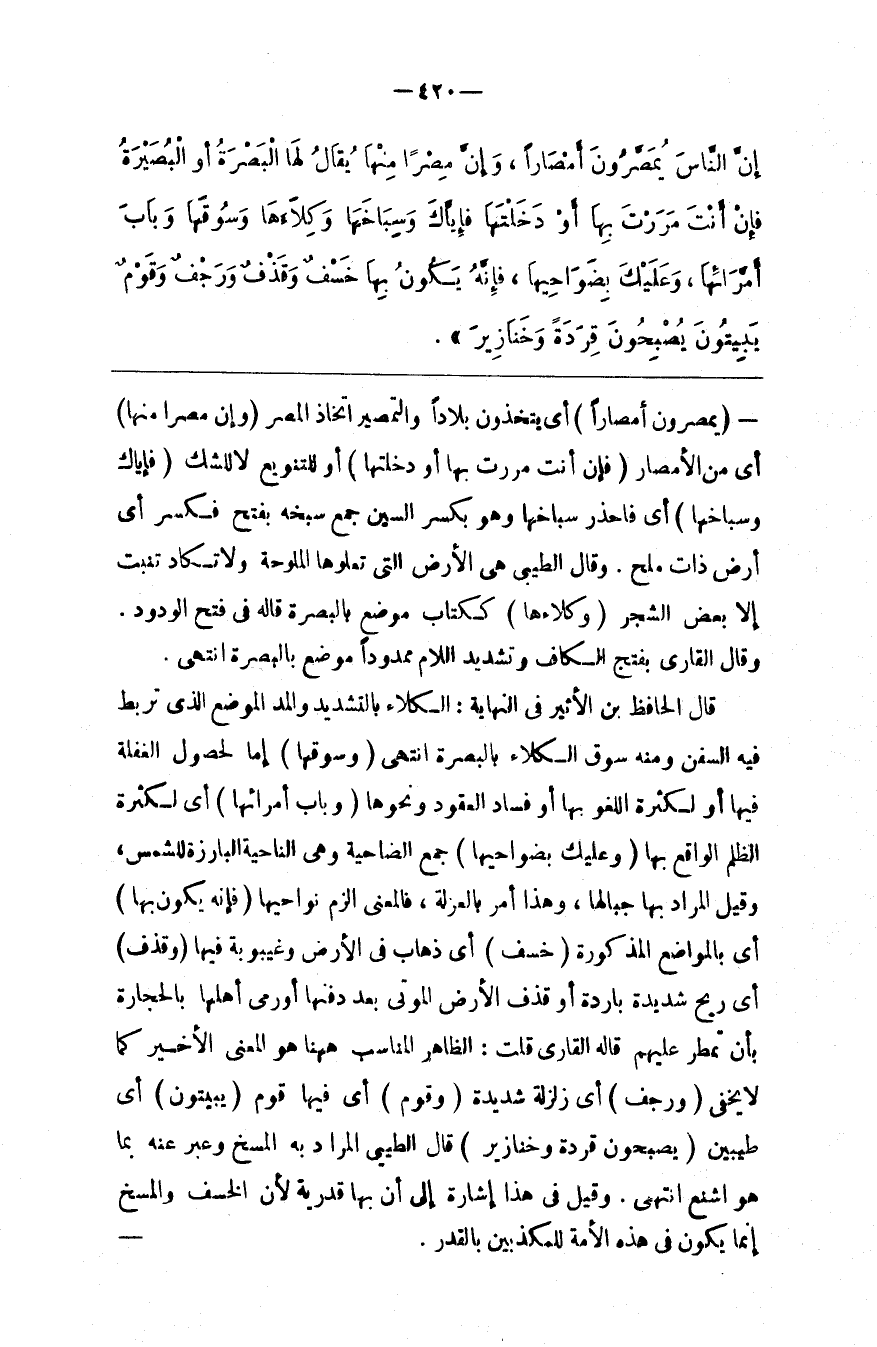 —٤٢٠—
إِنَّ النَّاسَ يُمَصِّرُونَ أَمْصَاراً ، وَإِنَّ مِصْرًا مِنْهَا يُقَالُ لَهَا الْبَصْرَةُ أو الْبُصَيْرَةُ
فإِنْ أَنْتَ مَرَرْتَ بِهَا أَوْ دَخَلْتَهَا فإِيَّاكَ وَسِبَاخَهَا وَكِلَاءَهَا وَسُوقَهَا وَبَابَ
أُمَرَائهَا ، وَعَلَيْكَ بِضَوَاحِيهَا ، فإِنَّهُ يَكُونُ بِهَا خَسْفٌ وَقَذْفٌ وَرَجْفٌ وَقَوْمٌ
يَبِيتُونَ يُصْبِحُونَ قِرَدَةً وَخَنَازِيرَ » .
— (يمصرون أمصاراً) أى يتخذون بلاداً والتمصير اتخاذ المصر (وإن مصرا منها)
أى من الأمصار (فإن أنت مررت بها أو دخلتها) أو للتنويع لا للشك (فإياك
وسباخها) أى فاحذر سباخها وهو بكسر السين جمع سبخه بفتح فكسر أى
أرض ذات ملح . وقال الطيبى هى الأرض التى تعلوها الملوحة ولا تكاد تنبت
إلا بعض الشجر (وكلاءها) ككتاب موضع بالبصرة قاله فى فتح الودود .
وقال القارى بفتح الكاف وتشديد اللام ممدوداً موضع بالبصرة انتهى .
قال الحافظ بن الأثير فى النهاية : الكلاء بالتشديد والمد الموضع الذى تربط
فيه السفن ومنه سوق الكلاء بالبصرة انتهى (وسوقها) إما لحصول الغفلة
فيها أو لكثرة اللغو بها أو فساد العقود ونحوها (وباب أمرائها) أى لكثرة
الظلم الواقع بها (وعليك بضواحيها) جمع الضاحية وهى الناحية البارزة للشمس،
وقيل المراد بها جبالها ، وهذا أمر بالعزلة ، فالمعنى الزم نواحيها (فإنه يكون بها)
أى بالمواضع المذكورة (خسف) أى ذهاب فى الأرض وغيبوبة فيها (وقذف)
أى ريح شديدة باردة أو قذف الأرض الموتى بعد دفنها أورمى أهلها بالحجارة
بأن تمطر عليهم قاله القارى قلت : الظاهر المناسب ههنا هو المعنى الأخير كما
لا يخفى (ورجف) أى زلزلة شديدة (وقوم) أى فيها قوم (يبيتون) أى
طيبين (يصبحون قردة وخنازير) قال الطيبى المراد به المسخ وعبر عنه بما
هو اشنع انتهى . وقيل فى هذا إشارة إلى أن بها قدرية لأن الخسف والمسخ
إنما يكون فى هذه الأمة للمكذبين بالقدر . —